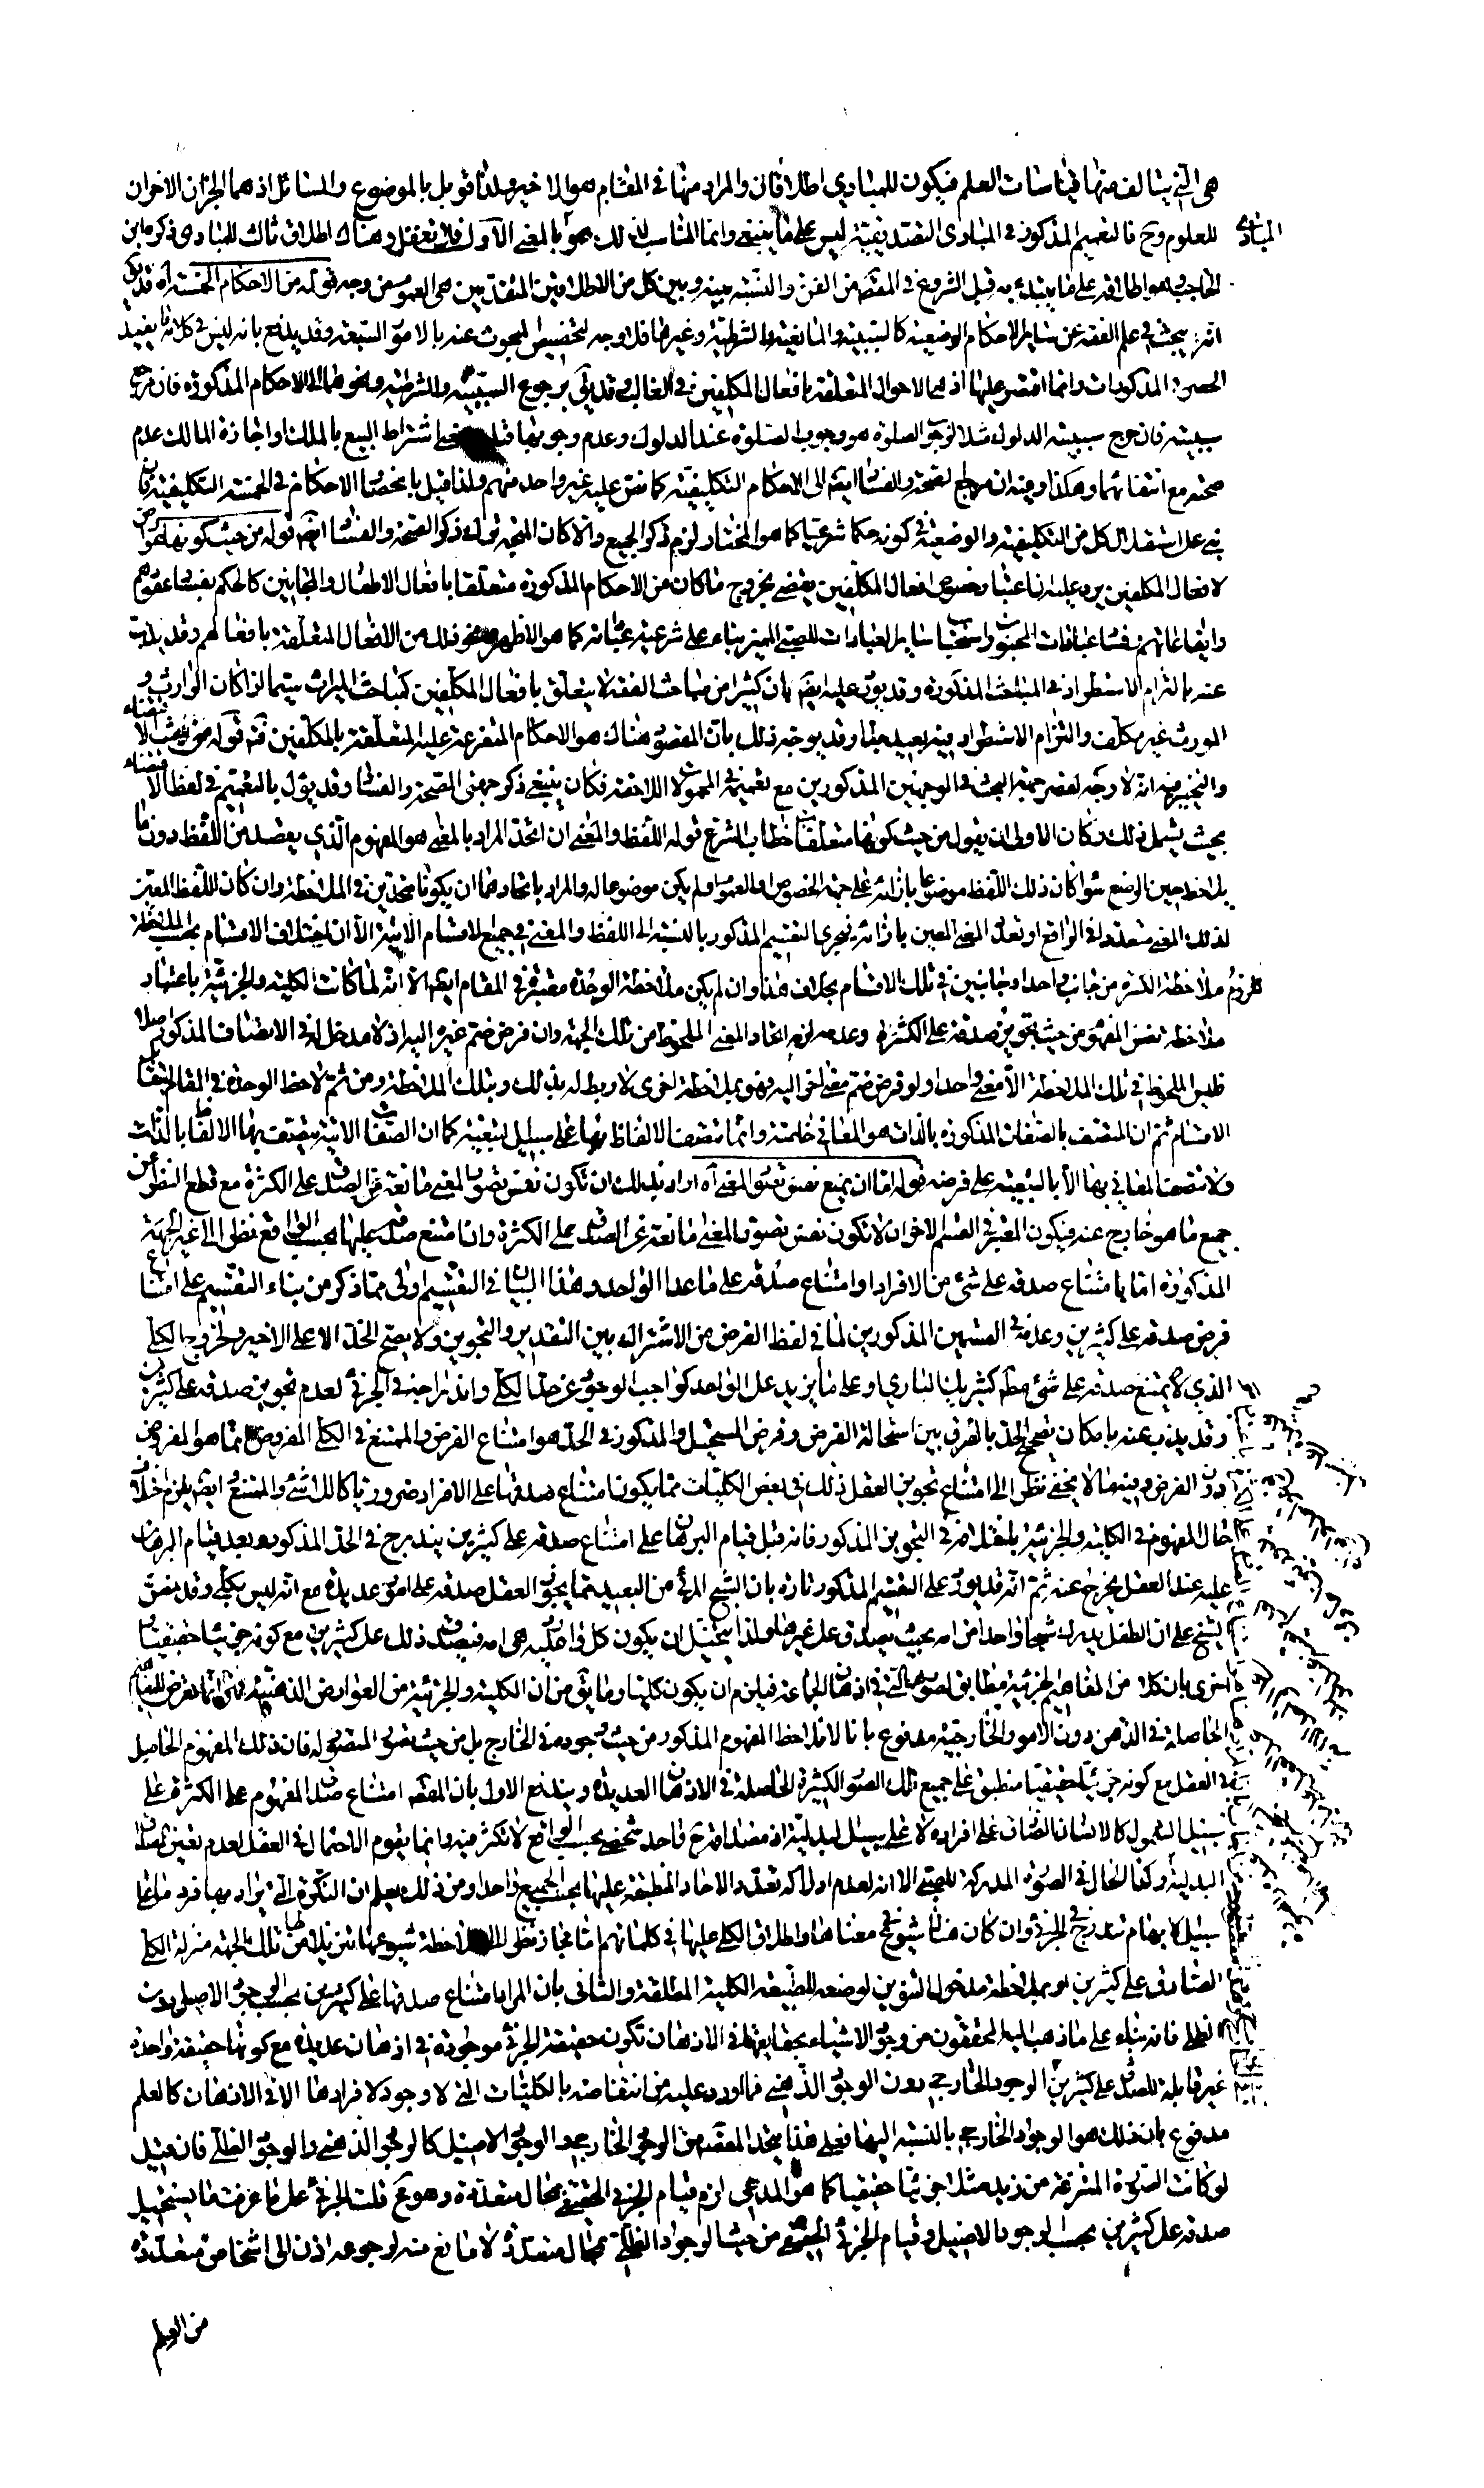 هى التي يتالف منها قياسات العلم فيكون للمبادي اطلاقان والمراد منها في المقام هو الاخير ولذا قوبل بالموضوع والمسائل اذ هما الجزان الاخران
للعلوم وح فالتعميم المذكور في المبادى التصديقية ليس على ما ينبغي وانما المناسب لذلك هو بالمعنى الاول فلا تغفل وهناك اطلاق ثالث للمبادى ذكره ابن
الحاجب وهو اطلاقه على ما يبتدء به قبل الشروع في المقصود من الفن والنسبة بينه وبين كل من الاطلاقين المتقدمين هى العموم من وجه قوله من الاحكام الخمسة اه قد يق
انه يبحث في علم الفقه عن ساير الاحكام الوضعية كالسببية والمانعية والشرطية وغيرها فلا وجه لتخصيص المبحوث عنه بالامور السبعة وقد يدفع بانه ليس في كلامه ما يفيد
الحصر في المذكورات وانما اقتصر عليها اذ هى الاحوال المتعلقة بافعال المكلفين في الغالب وقد يق برجوع السببية والشرطية ونحوهما الى الاحكام المذكورة فان مرجع
سببية الدلوك مثلا لوجوب الصلوة هو وجوب الصلوة عند الدلوك وعدم وجوبها قبله ومعنى اشتراط البيع بالملك او اجازة المالك عدم
صحته مع انتفائهما وهكذا وفيه ان مرجع الصحة والفساد ايضا الى الاحكام التكليفية كما نص عليه غير واحد منهم ولذا قيل بانحصار الاحكام في الخمسة التكليفية فان
بنى على استقلال كل من التكليفية والوضعية في كونه حكما شرعيا كما هو المختار لزم ذكر الجميع والا كان المتجه ترك ذكر الصحة والفساد ايضا قوله من حيث كونها عوارض
لافعال المكلفين يرد عليه ان اعتبار خصوص افعال المكلفين يقضى بخروج ما كان من الاحكام المذكورة متعلقا بافعال الاطفال والمجانين كالحكم بفساد عقودهم
وايقاعاتهم وفساد عبادات المجنون واستحباب ساير العبادات للصبى المميز بناء على شرعية عباداته كما هو الاظهر ونحو ذلك من الافعال المتعلقة بافعالهم وقد يذب
عنه بالتزام الاستطراد في المباحث المذكورة وقد يورد عليه ايضا بان كثيرا من مباحث الفقه لا يتعلق بافعال المكلفين كمباحث الميراث سيما اذا كان الوارث و
المورث غير مكلف والتزام الاستطراد فيه بعيد جدا وقد يوجه ذلك بان المقصود هناك هو الاحكام المتفرعة عليه المتعلقة بالمكلفين فت قوله من حيث الاقتضاء
والتخيير فيه انه لا وجه لقصر جهة البحث في الوجهين المذكورين مع تعميمه في المحمولات اللاحقة فكان ينبغي ذكر جهتى الصحة والفساد وقد يؤل بالتعميم في لفظ الاقتضاء
بحيث يشمل ذلك وكان الاولى ان يقول من حيث كونها متعلقات خطاب الشرع قوله اللفظ والمعنى ان اتحدا المراد بالمعنى هو المفهوم الذي يقصد من اللفظ دون ما
يلاحظ حين الوضع سواء كان ذلك اللفظ موضوعا بازائه على جهة الخصوص او العموم او لم يكن موضوعا له والمراد باتحادهما ان يكونا متحدين في الملاحظة وان كان اللفظ المعتبر
لذلك المعنى متعددا في الواقع او تعدد المعنى المعين بازائه فيجرى التقسيم المذكور بالنسبة الى اللفظ والمعنى في جميع الاقسام الاتية الا ان اختلاف الاقسام بحسب الملاحظة
فلزوم ملاحظة الكثرة من جانب واحد او جانبين في تلك الاقسام بخلاف هذا وان لم يكن ملاحظة الوحدة معتبرة في المقام ايضا الا انه لما كانت الكلية والجزئية باعتبار
ملاحظة نفس المفهوم من حيث تجويز صدقه على الكثرة وعدمه لزم اتحاد المعنى الملحوظ من تلك الجهة وان فرض ضم غيره اليه اذ لا مدخل له في الاتصاف المذكور اصلا
فليس الملحوظ في تلك الملاحظة الا معنى واحدا ولو فرض ضم معنى اخر اليه فهو بملاحظة اخرى لا ربط له بذلك وبتلك الملاحظة ومن ثم لاحظ الوحدة في المقام بخلاف باقي
الاقسام ثم ان المتصف بالصفات المذكورة بالذات هو المعانى خاصة وانما تتصف الالفاظ بها على سبيل التبعية كما ان الصفات الاتية يتصف بها الالفاظ بالذات
ولا تتصف المعاني بها الا بالتبعية على فرضه قوله اما ان يمنع نفس تصور المعنى اه اراد بذلك ان تكون نفس تصور المعنى مانعة من الصدق على الكثرة مع قطع النظر عن
جميع ما هو خارج عنه فيكون المعتبر في القسم الاخر ان لا تكون نفس تصور المعنى مانعة عن الصدق على الكثرة وان امتنع صدقه عليها بحسب الواقع نظرا الى غير الجهة
المذكورة اما بامتناع صدقه على شئ من الافراد او امتناع صدقه على ما عدا الواحد وهذا البيان في التقسيم اولى مما ذكر من بناء التقسيم على امتناع
فرض صدقه على كثيرين وعدمه في القسمين المذكورين لما في لفظ الفرض من الاشتراك بين التقدير والتجويز ولا يصح الحد الا على الاخير ولخروج الكلى
الذي يمتنع صدقه على شئ مطلقا كشريك البارى او على ما يزيد على الواحد كواجب الوجود عن حد الكلى واندراجه في الجزئى لعدم تجويز صدقه على كثيرين
وقد يذب عنه بامكان تصحيح الحد بالفرق بين استحالة الفرض وفرض المستحيل والمذكور في الحد هو امتناع الفرض والممتنع في الكلى المفروض انما هو المفروض
دون الفرض وفيه ما لا يخفى نظرا الى امتناع تجويز العقل ذلك في بعض الكليات مما يكون امتناع صدقها على الافراد ضروريا كاللاشئ والممتنع ايضا يلزم اختلاف
حال المفهوم في الكلية والجزئية باختلاف في التجويز المذكور فانه قبل قيام البرهان على امتناع صدقه على كثيرين يندرج في الحد المذكور وبعد قيام البرهان
عليه عند العقل يخرج عنه ثم انه قد يورد على التقسيم المذكور تارة بان الشبح المرئى من البعيد مما يجوز العقل صدقه على امور عديدة مع انه ليس بكلى وقد نص
الشيخ على ان الطفل يدرك شبحا واحدا من امه بحيث يصدق على غيرها ولذا يتخيل ان يكون كل واحدة هى امه فيصدق ذلك على كثيرين مع كونه جزئيا حقيقيا
اخرى بان كلا من المفاهيم الجزئية مطابق لصورها التي في اذهان الجماعة فيلزم ان يكون كليا وما يق من ان الكلية والجزئية من العوارض الذهنية فهى انما تعرض
الحاصلة في الذهن دون الامور الخارجية مدفوع بانا لا نلاحظ المفهوم المذكور من حيث وجوده في الخارج بل من حيث تصور المتصور له فان ذلك المفهوم الحاصل
في العقل مع كونه جزئيا حقيقيا منطبق على جميع تلك الصور الكثيرة الحاصلة في الاذهان العديدة ويدفع الاول بان المقصود امتناع صدق المفهوم على الكثرة على
سبيل الشمول كالانسان الصادق على افراده لا على سبيل البدلية اذ مصداقه ح واحد شخصى بحسب الواقع لا تكثر فيه وانما يقوم الاحتمال في العقل لعدم تعين المصداق
البدلية وكذا الحال في الصورة المدركة للصبى الا انه لعدم ادراكه تعدد الاحاد المنطبقة عليها يحسب الجميع واحدا ومن ذلك يعلم ان النكرة التي يراد بها فرد ما على
سبيل الابهام تندرج في الجزئى وان كان هناك شيوع في معناها واطلاق الكلى عليها في كلماتهم اما مجاز نظرا الى ملاحظة شيوعها تنزيلا لها من تلك الجهة منزلة الكلى
الصادق على كثيرين او بملاحظة مدخول التنوين لوضعه للطبيعة الكلية المطلقة والثانى بان المراد امتناع صدقها على كثيرين بحسب الوجود الاصلى دون
الظلى فانه بناء على ما ذهب اليه المحققون من وجود الاشياء بحقايقها في الاذهان تكون حقيقة الجزئى موجودة في اذهان عديدة مع كونها حقيقة واحدة
غير قابلة للصدق على كثيرين في الوجود الخارجى دون الوجود الذهنى فما اورد عليه من انتقاضه بالكليات التى لا وجود لافرادها الا في الاذهان كالعلم
مدفوع بان ذلك هو الوجود الخارجى بالنسبة اليها فعلى هذا يتحد المقصود من الوجود الخارجى والوجود الاصيل كالوجود الذهنى والوجود الظلى فان قيل
لو كانت الصورة المنتزعة من زيد مثلا جزئيا حقيقيا كما هو المدعى لزم قيام الجزئى الحقيقى بمحال متعددة وهو مح قلت الجزئى على ما عرفت ما يستحيل
صدقه على كثيرين بحسب الوجود الاصيل وقيام الجزئى الحقيقى من حيث الوجود الظلى بمحال متعددة لا مانع منه لرجوعه اذن الى اشخاص متعددة
من العلم
المبادى